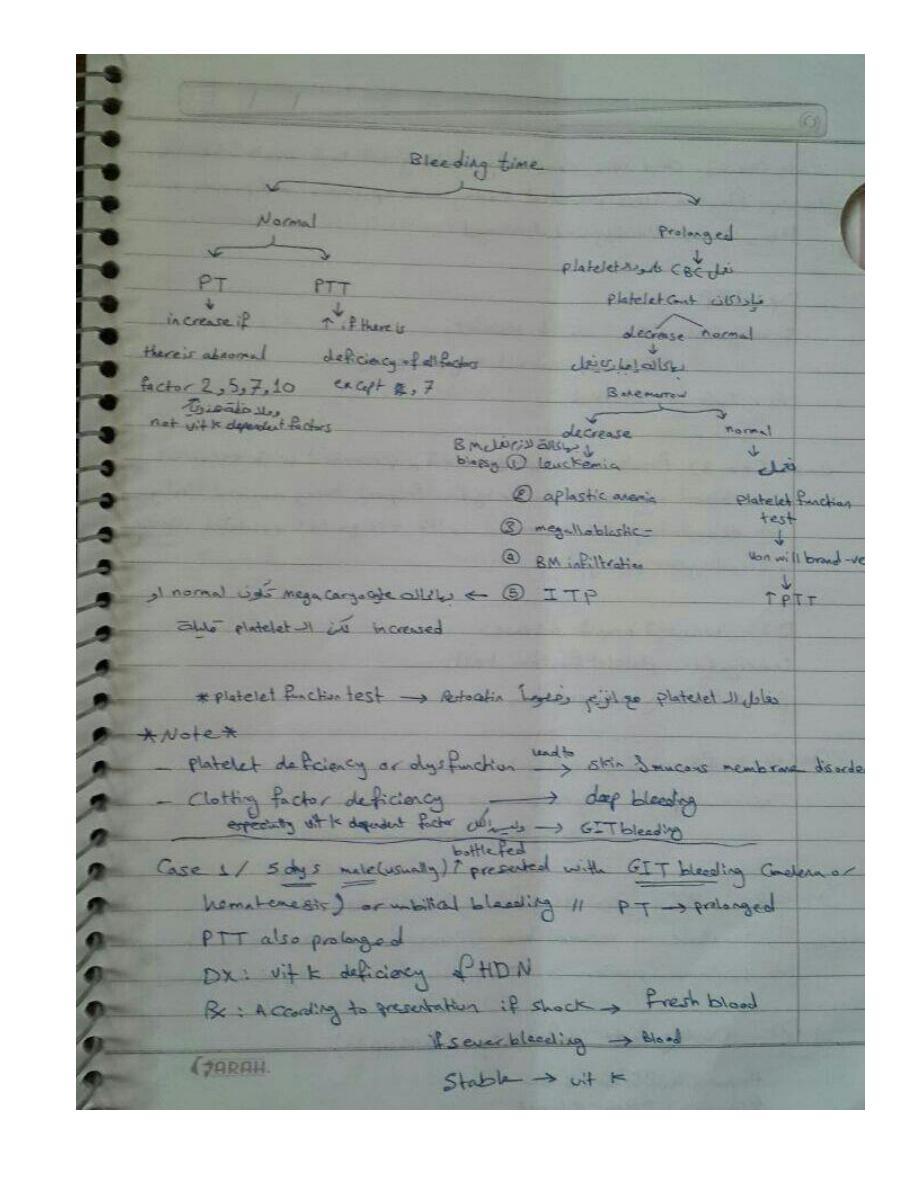 Bleeding time
Normal
Prolonged
نعمل CBC platelet
PT
PTT
platelet Cont فإذا كان
increase if
↑ if there is
decrease normal
there is abnormal
deficiency of all factors
factor 2, 5, 7, 10
except , 7
Bonemarrow
not vit k dependent factors
decrease
normal
BM
biopsy ① leuckemia
نعمل
② aplastic anemia
platelet function
test
③ megalloblastic =
④ BM infiltration
Von will brand -ve
⑤ I T P
↑ PTT
← megacargocyte تكون normal او
increased لكن الـ platelet قليلة
* platelet function test → مع platelet الـ
* Note *
- platelet deficiency or dysfunction lead to → skin & mucous membrane disorde
- Clotting factor deficiency → deep bleeding
especially vit k dependent factor → GIT bleeding
bottle fed
Case 1/ 5 dys male (usually) ↑ presented with GIT bleeding (melena or
hematemesis) or umbilical bleeding // PT → prolonged
PTT also prolonged
DX: vit k deficiency of HDN
Rx: According to presentation if shock → fresh blood
if sever bleeding → Blood
Stable → vit K
SARAH.